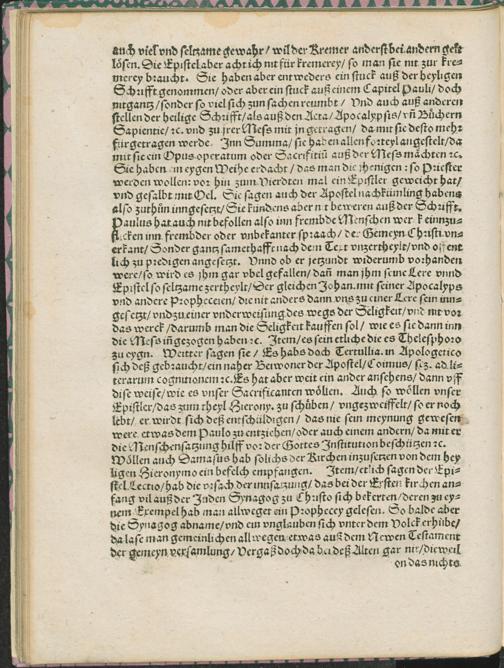 auch viel vnd seltzame gewahr / wil der Kremer anderst bei andern gelt
lösen. Die Epistel aber acht ich nit für kremerey / so man sie nit zur kre=
merey braucht. Sie haben aber entweders ein stuck auß der heyligen
Schrifft genommen / oder aber ein stuck auß einem Capitel Pauli / doch
nit gantz / sonder so viel sich zun sachen reumbt / Vnd auch auß anderen
stellen der heilige Schrifft / als auß den Acta / Apocalypsis / vñ Büchern
Sapientie / ꝛc. vnd zu jrer Mess mit jn getragen / da mit sie desto mehr
fürgetragen werde. Inn Summa / sie haben allen forteyl angestelt / da
mit sie ein Opus operatum oder Sacrifitiũ auß der Mess mächten ꝛc.
Sie haben ein eygen Weihe erdacht / das man die jhenigen : so Priester
werden wollen : vor hin zum Vierdten mal ein Epistler geweicht hat /
vnd gesalbt mit Oel. Sie sagen auch der Apostel nachkümling habens
also zuthůn inngesetzt / Sie kündens aber nit beweren auß der Schrifft.
Paulus hat auch nit befollen also inn frembde Menschen werck einzu=
flicken inn frembder oder vnbekanter spraach / der Gemeyn Christi vn=
erkant / Sonder gantz samethafft nach dem Text vnzertheylt / vnd offent
lich zu predigen angesetzt. Vnnd ob er jetzundt widerumb vorhanden
were / so wird es jhm gar vbel gefallen / dañ man jhm seine Lere vnnd
Epistel so seltzame zertheylt / Der gleichen Johan. mit seiner Apocalyps
vnd andere Propheceien / die nit anders dann vns zu einer Lere sein inn=
gesetzt / vnd zu einer vnderweisung des wegs der Seligkeit / vnd nit vor
das werck / darumb man die Seligkeit kauffen sol / wie es sie dann inn
die Mess ingezogen haben ꝛc. Item / es sein etliche die es Thelesphoro
zu eygn. Weitter sagen sie / Es habs doch Tertullia. in Apologetico
sich deß gebraucht / ein naher Beiwoner der Apostel / Coimus / scz. ad li=
terarum cognitionem ꝛc. Es hat aber weit ein ander ansehens / dann vff
dise weise / wie es vnser Sacrificanten wöllen. Auch so wöllen vnser
Epistler / das zum theyl Hierony. zu schüben / vngezweiffelt / so er noch
lebt / er wirdt sich deß entschüldigen / das nie sein meynung gewesen
were etwas dem Paulo zu entziehen / oder auch einem andern / da mit er
die Menschensatzung hilff vor der Gottes Institution beschützen ꝛc.
Wöllen auch Damasus hab solichs der Kirchen inzusetzen von dem hey
ligen Hieronymo ein befelch empfangen. Item / etlich sagen der Epi=
stel Lectio / hab die vrsach der innsatzung / das bei der Ersten kirchen an=
fang vil auß der Jnden Synagog zu Christo sich bekerten / deren zu ey=
nem Exempel hab man allweget ein Prophecey gelesen. So balde aber
die Synagog abname / vnd ein vnglauben sich vnter dem Volck erhübe /
da lase man gemeinlichen allwegen etwas auß dem Newen Testament
der gemeyn versamlung / Vergaß doch da bei deß Alten gar nit / dieweil
on das nichts